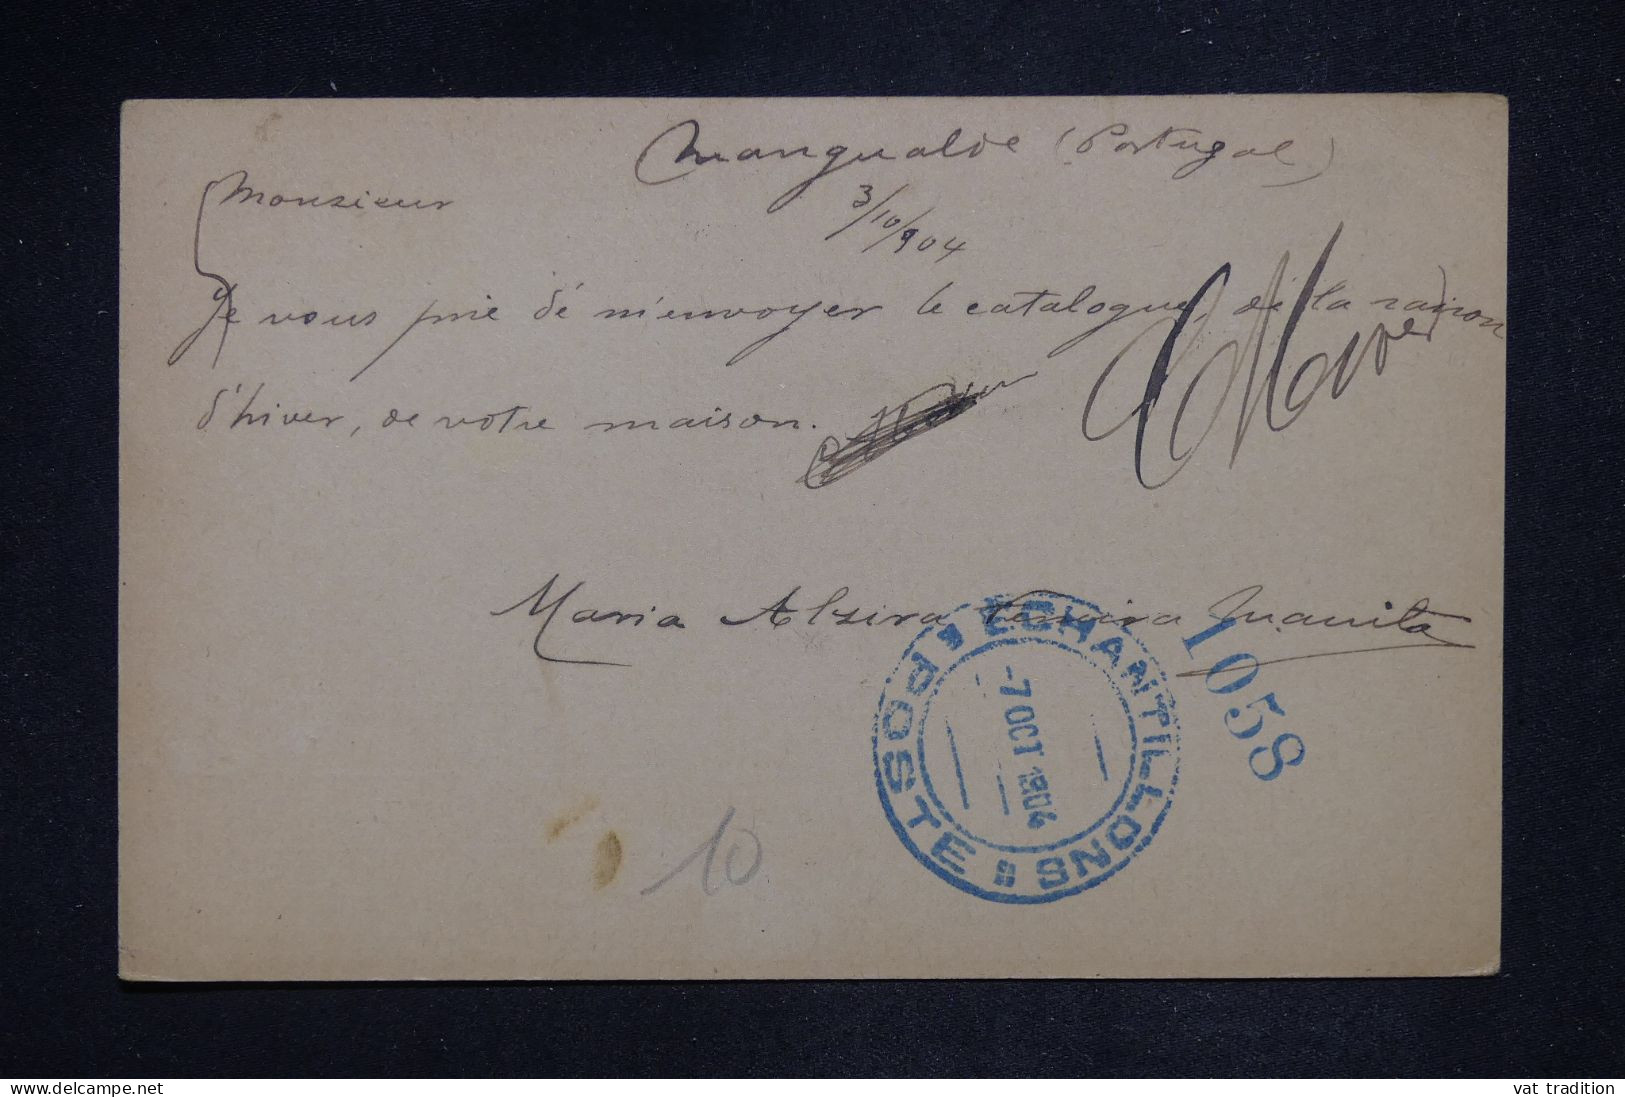 Mangualde (Portugal)
3/10/904
Monsieur
Je vous prie dé m'envoyer le catalogue, dé la raison
d'hiver, de votre maison.
Maria Alzira
POSTE ECHANTILLONS
-7 OCT 1904
1058
10
vat tradition
www.delcampe.net